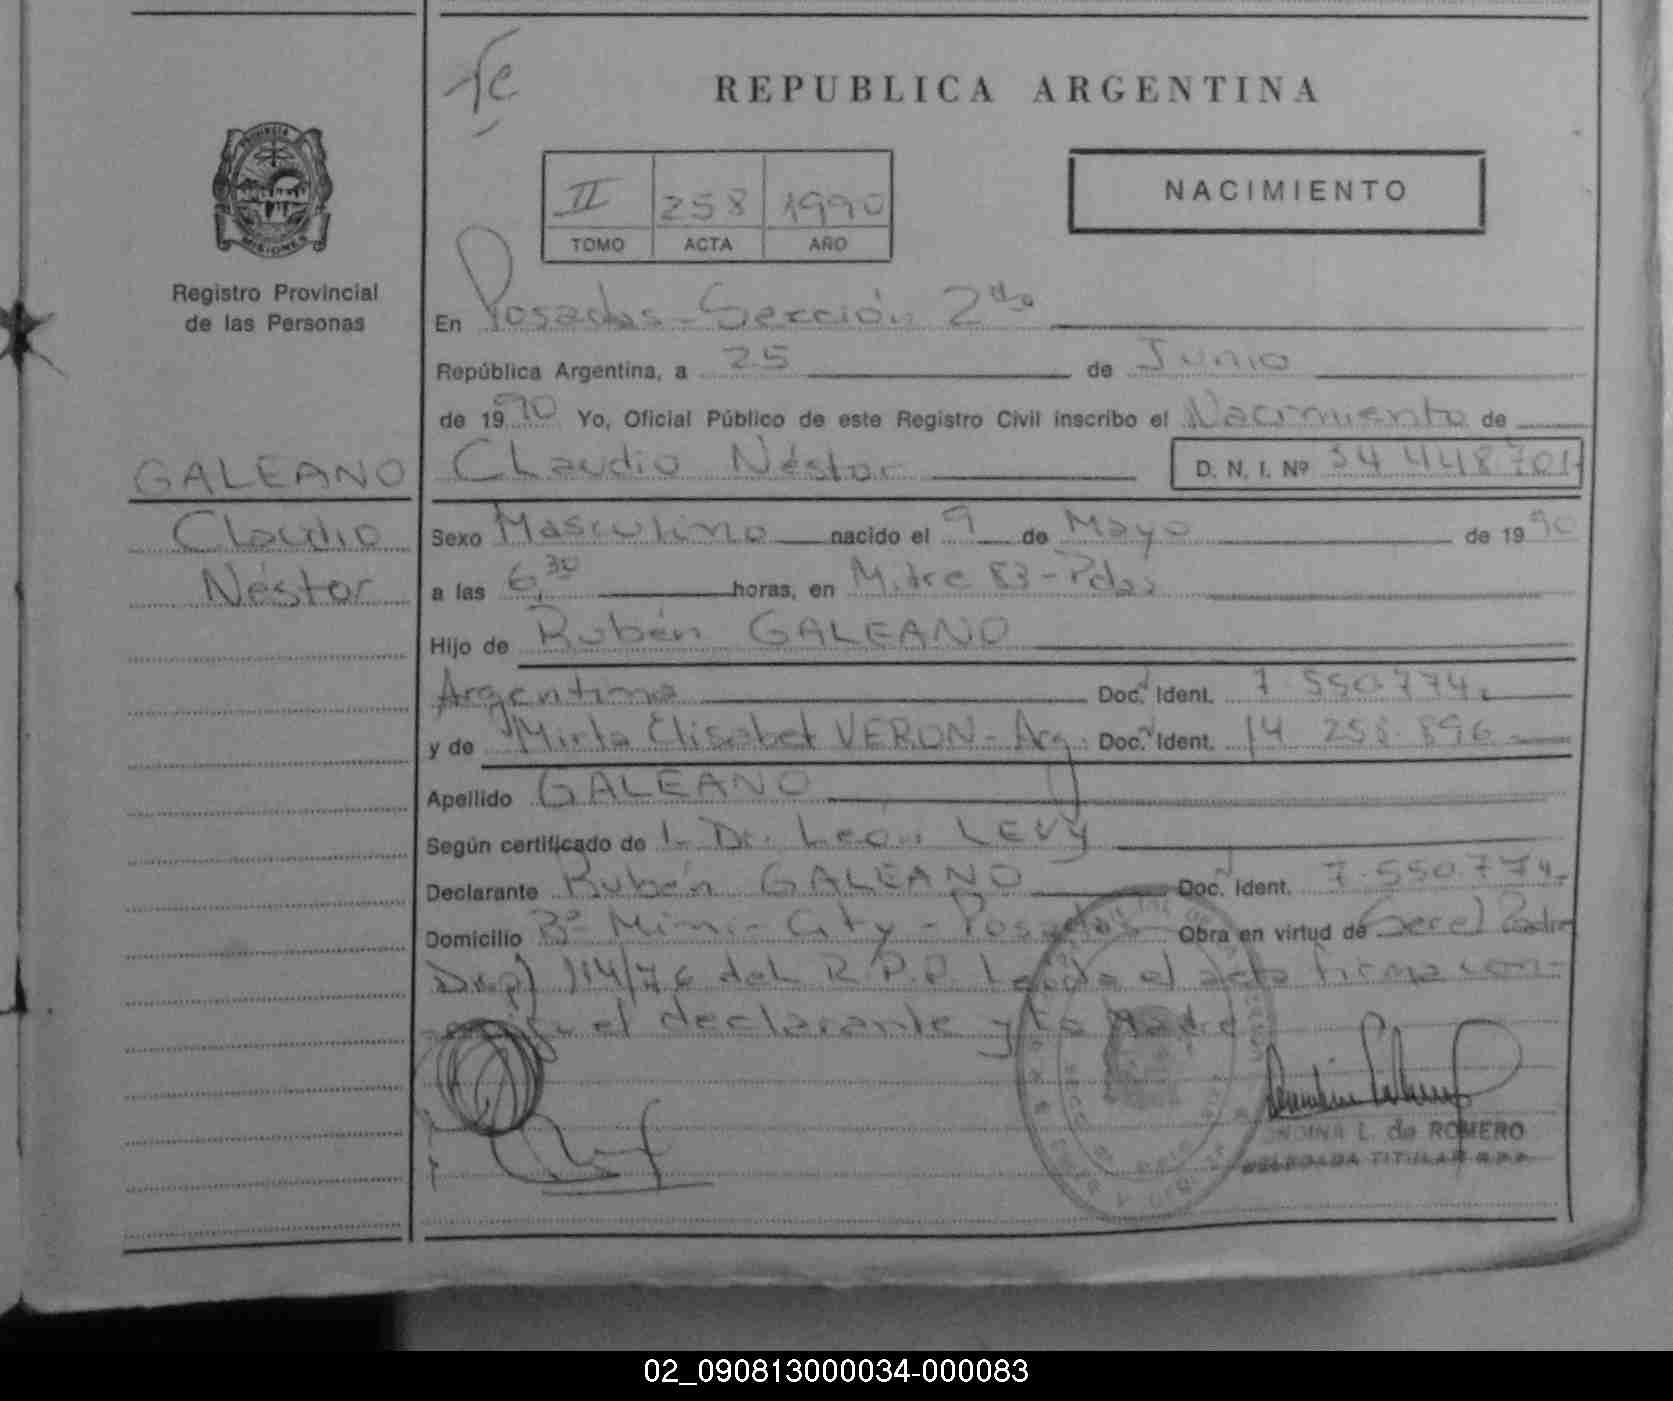 Te
REPUBLICA ARGENTINA
PROVINCIA
MISIONES
II 258 1990
TOMO ACTA AÑO
NACIMIENTO
Registro Provincial
de las Personas
En Posadas - Sección 2da
República Argentina, a 25 de Junio
de 1990 Yo, Oficial Público de este Registro Civil inscribo el Nacimiento de
GALEANO Claudio Néstor D. N. I. Nº 34 448 701
Claudio Sexo Masculino nacido el 9 de Mayo de 1990
Néstor a las 6,30 horas, en Mitre 83 - Pdas
Hijo de Rubén GALEANO
Argentino Doc. Ident. 7.550.774
y de Mirta Elisabet VERON - Arg. Doc. Ident. 14 258.896
Apellido GALEANO
Según certificado de L Dr. León LEVY
Declarante Rubén GALEANO Doc. Ident. 7.550.774
Domicilio Bº Mini-City - Posadas Obra en virtud de Ser el Padre
Disp) 114/76 del R.P.P. Leída el acta firma con-
el declarante y la Madre
ONDINA L. de ROMERO
DELEGADA TITULAR R.P.P.
02_090813000034-000083